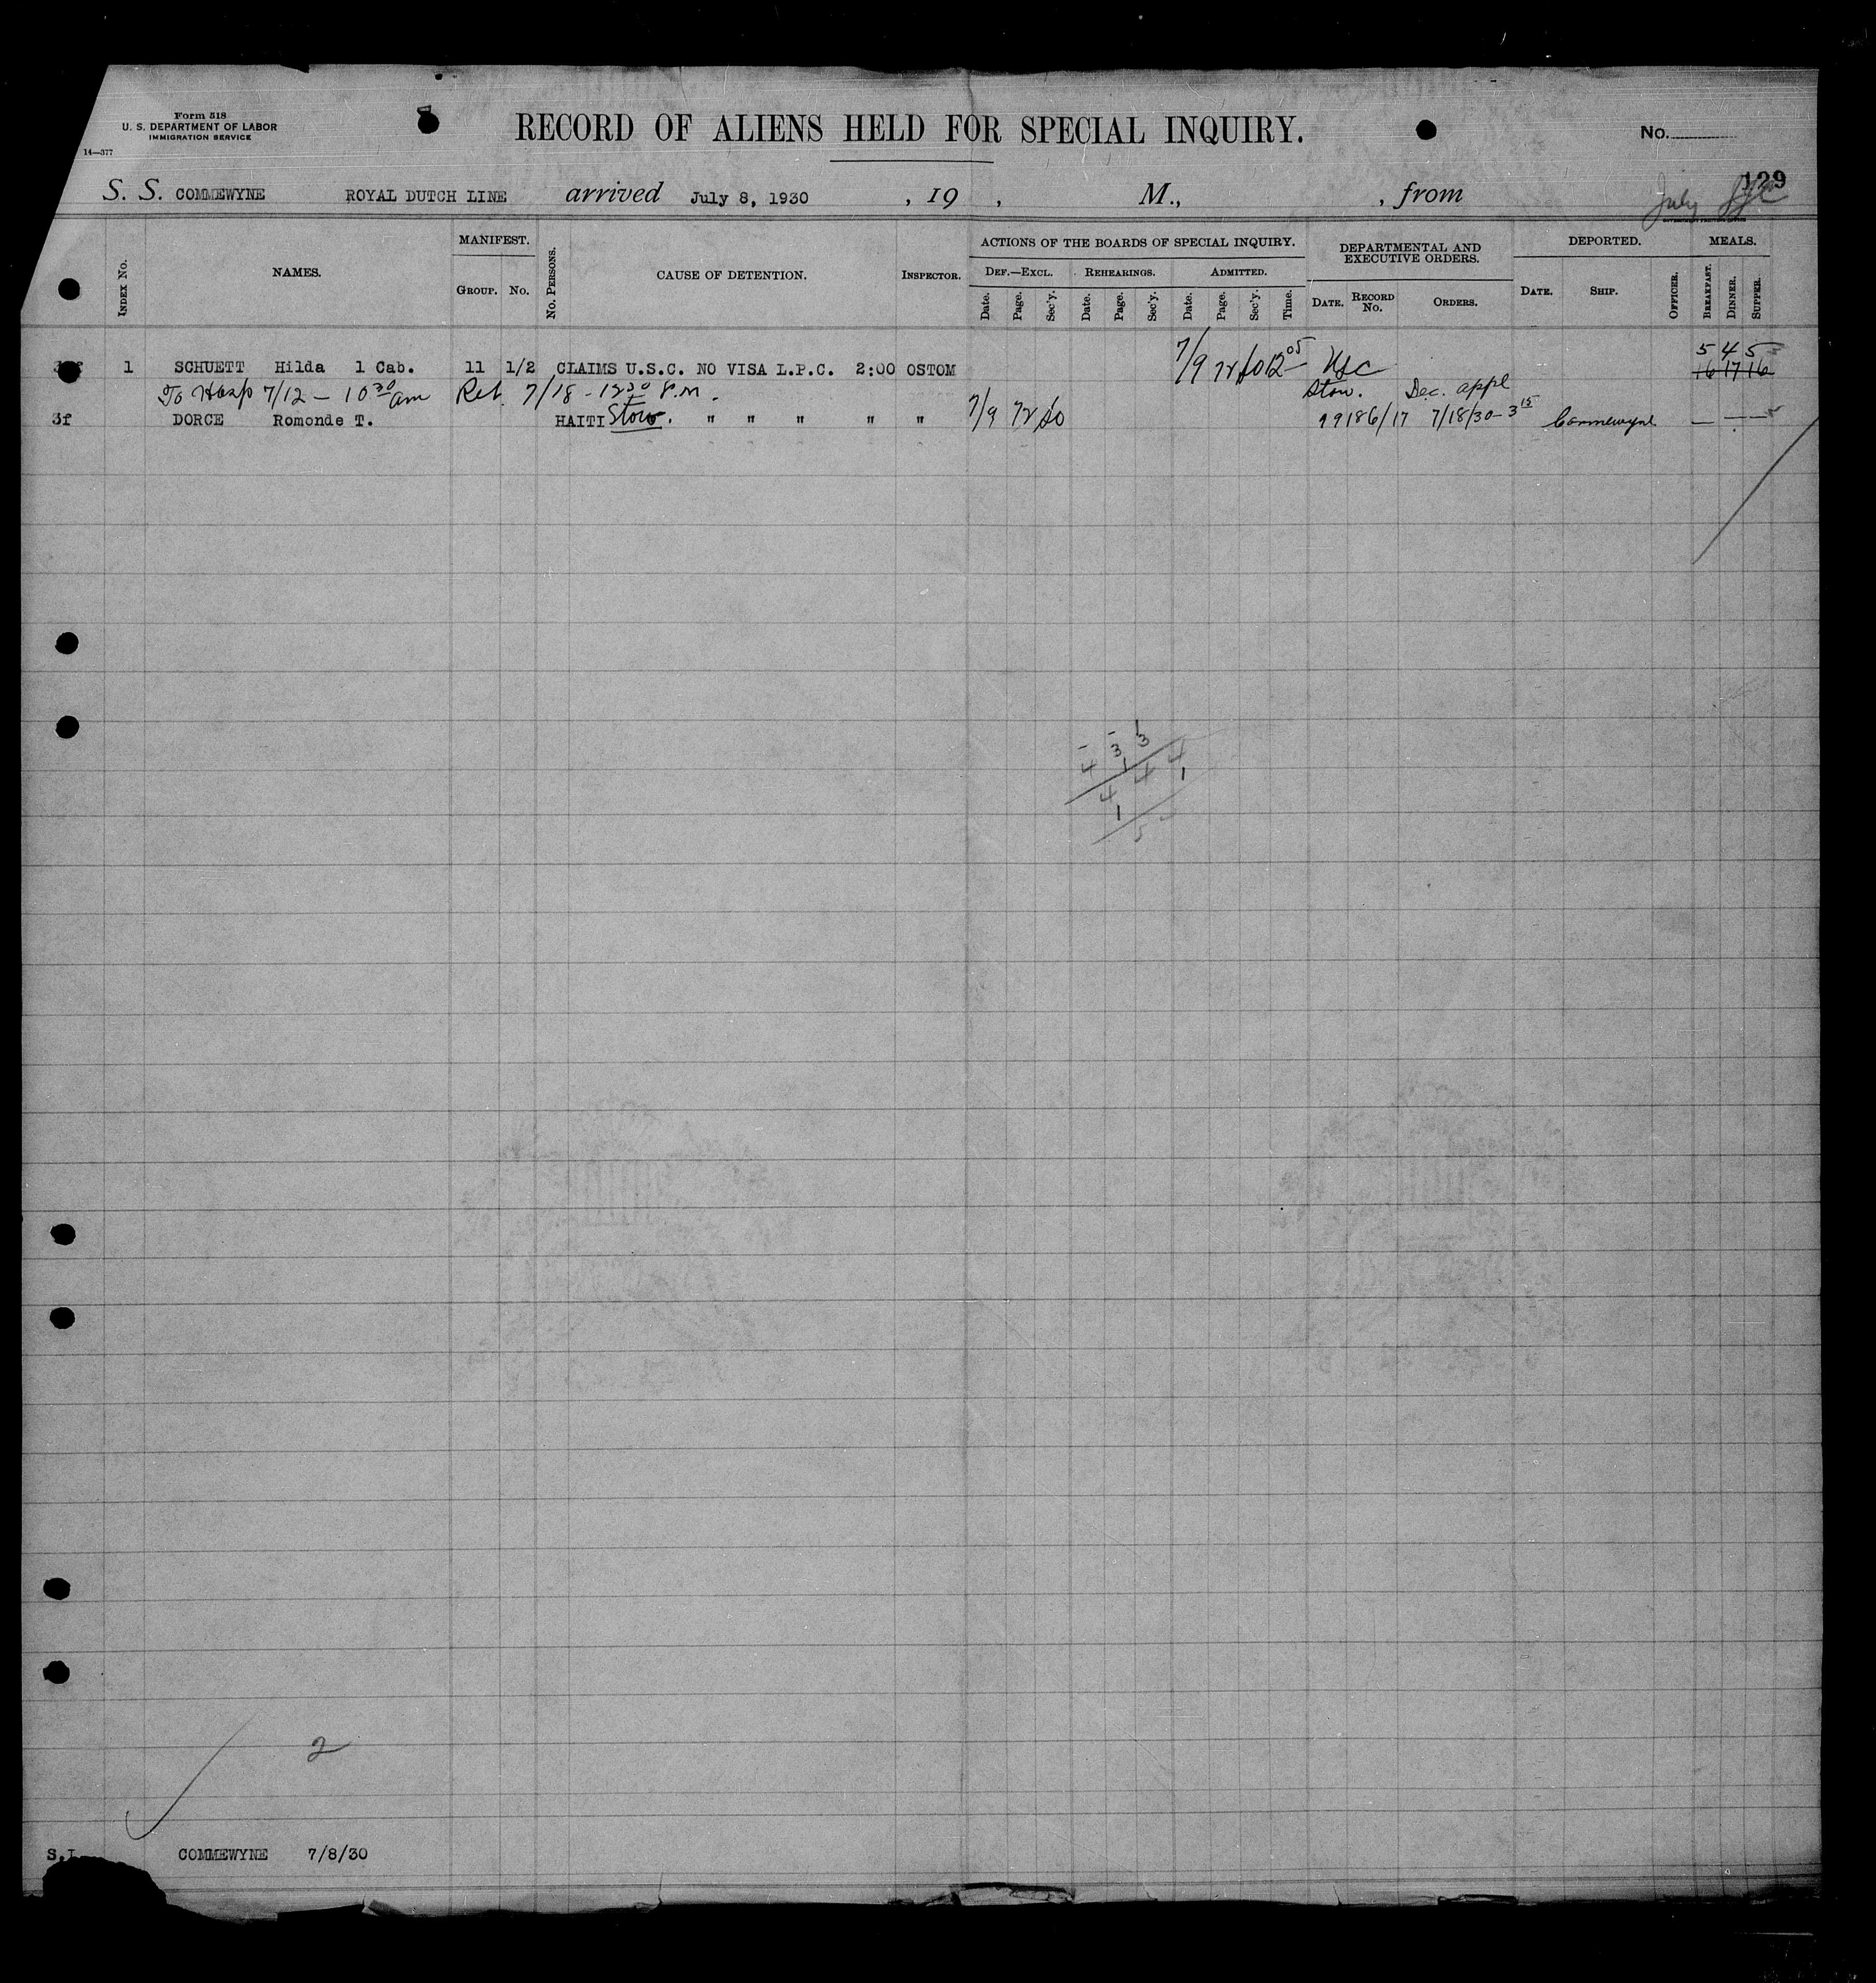 Form 518
U. S. DEPARTMENT OF LABOR
IMMIGRATION SERVICE
14—377
RECORD OF ALIENS HELD FOR SPECIAL INQUIRY.
No.
129
S. S. COMMEWYNE ROYAL DUTCH LINE arrived July 8, 1930 , 19 , M., , from
July
INDEX No. NAMES. MANIFEST. GROUP. No. No. PERSONS. CAUSE OF DETENTION. INSPECTOR.
ACTIONS OF THE BOARDS OF SPECIAL INQUIRY.
DEF.—EXCL. REHEARINGS. ADMITTED.
Date. Page. Sec'y. Date. Page. Sec'y. Date. Page. Sec'y. Time.
DEPARTMENTAL AND EXECUTIVE ORDERS.
DATE. RECORD No. ORDERS.
DEPORTED.
DATE. SHIP. OFFICER.
MEALS.
BREAKFAST. DINNER. SUPPER.
1 SCHUETT Hilda 1 Cab. 11 1/2 CLAIMS U.S.C. NO VISA L.P.C. 2:00 OSTOM 7/9 72 12 05 USC 5 4 5
16 17 16
To Hosp 7/12 — 10 30 am Ret 7/18 - 12 20 P.M. Stow. Dec. appl
3f DORCE Romonde T. HAITI Stow. " " " " " 7/9 72 99186/17 7/18/30 - 3 15 Commewyne — — —
4 3 3
1
4 4 4
1 1
5
2
S.I. COMMEWYNE 7/8/30